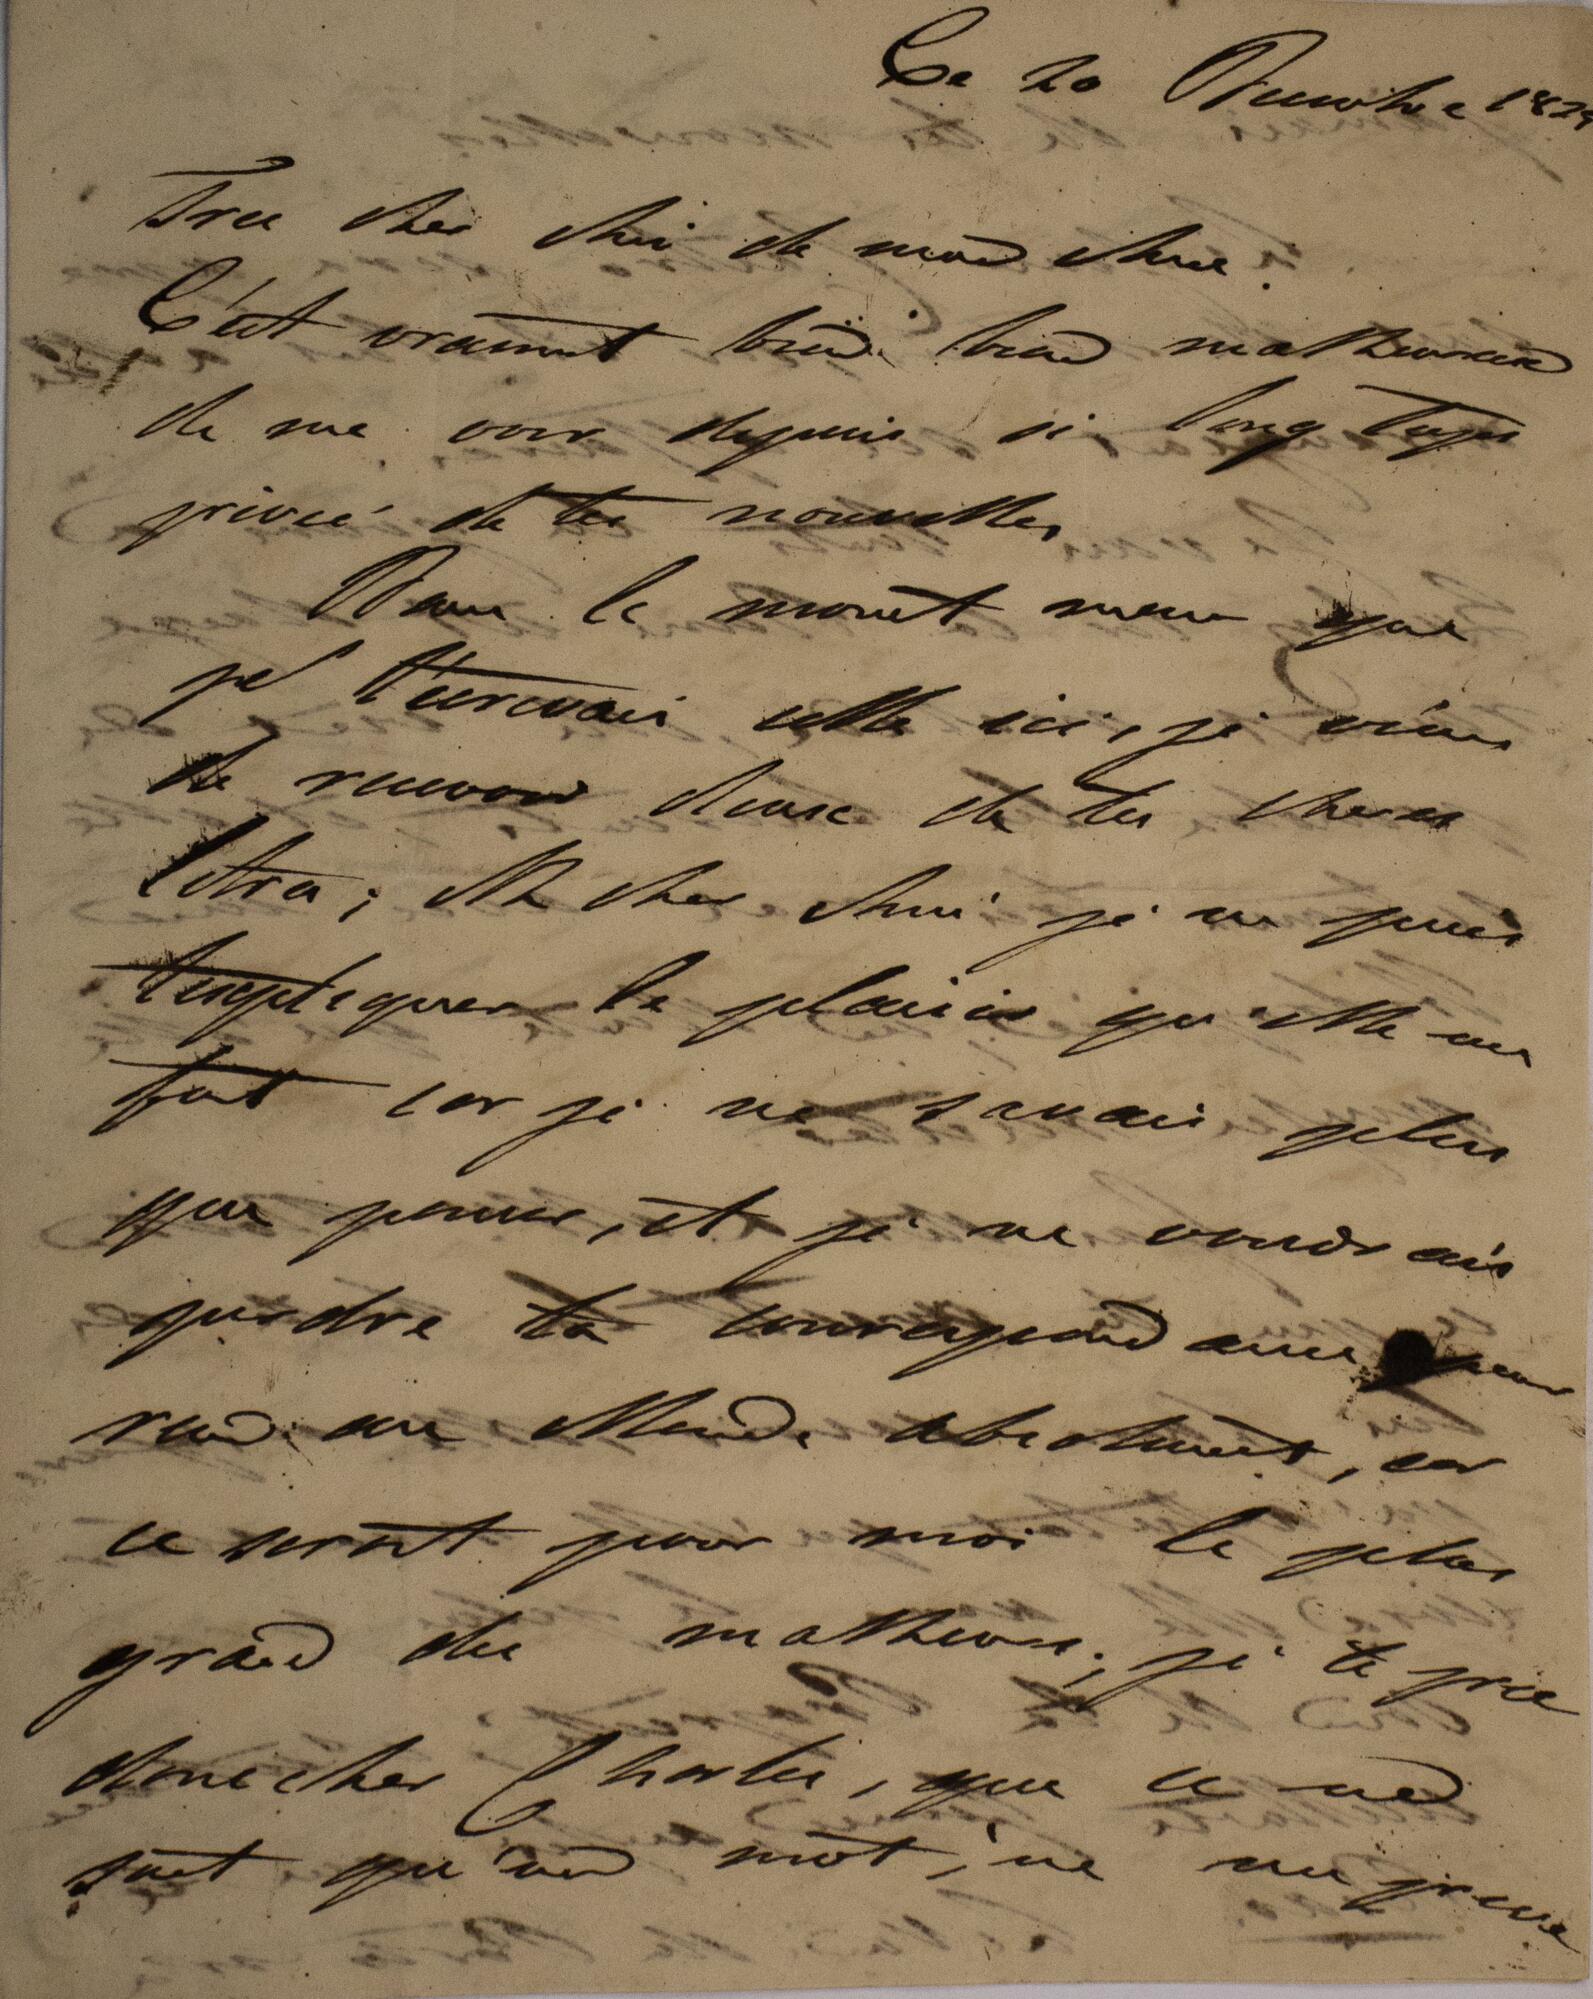 Ce 20 Novembre 1829
Tres cher Ami de mon Ame.
C'est vraiment bien bien malheureux
de me voir depuis si long temps
privé de tes nouvelles
Dans le moment meme que
je t'ecrivais celle ici, je viens
de recevoir deux de tes cheres
letres; Ah cher Ami je ne puis
t'expliquer le plaisir qu'elle me
fait car je ne savais plus
que penser, et je ne voudrais
perdre ta correspondance pour
rien au Monde absolument, car
ce serait pour moi le plus
grand des malheurs; je te prie
donc cher Charles, que ce ne
soit qu'un mot, ne me prive